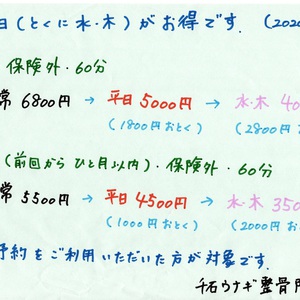 日(とくに水・木)がお得です. (202
保険外・60分
常 6800円 → 平日 5000円 → 水・木 40
(1800円おとく) (2800円お
(前回から ひと月以内)・保険外・60分
常 5500円 → 平日 4500円 → 水・木 350
(1000円おとく) (2000円おと
予約をご利用いただいた方が対象です.
千石ウナギ整骨院